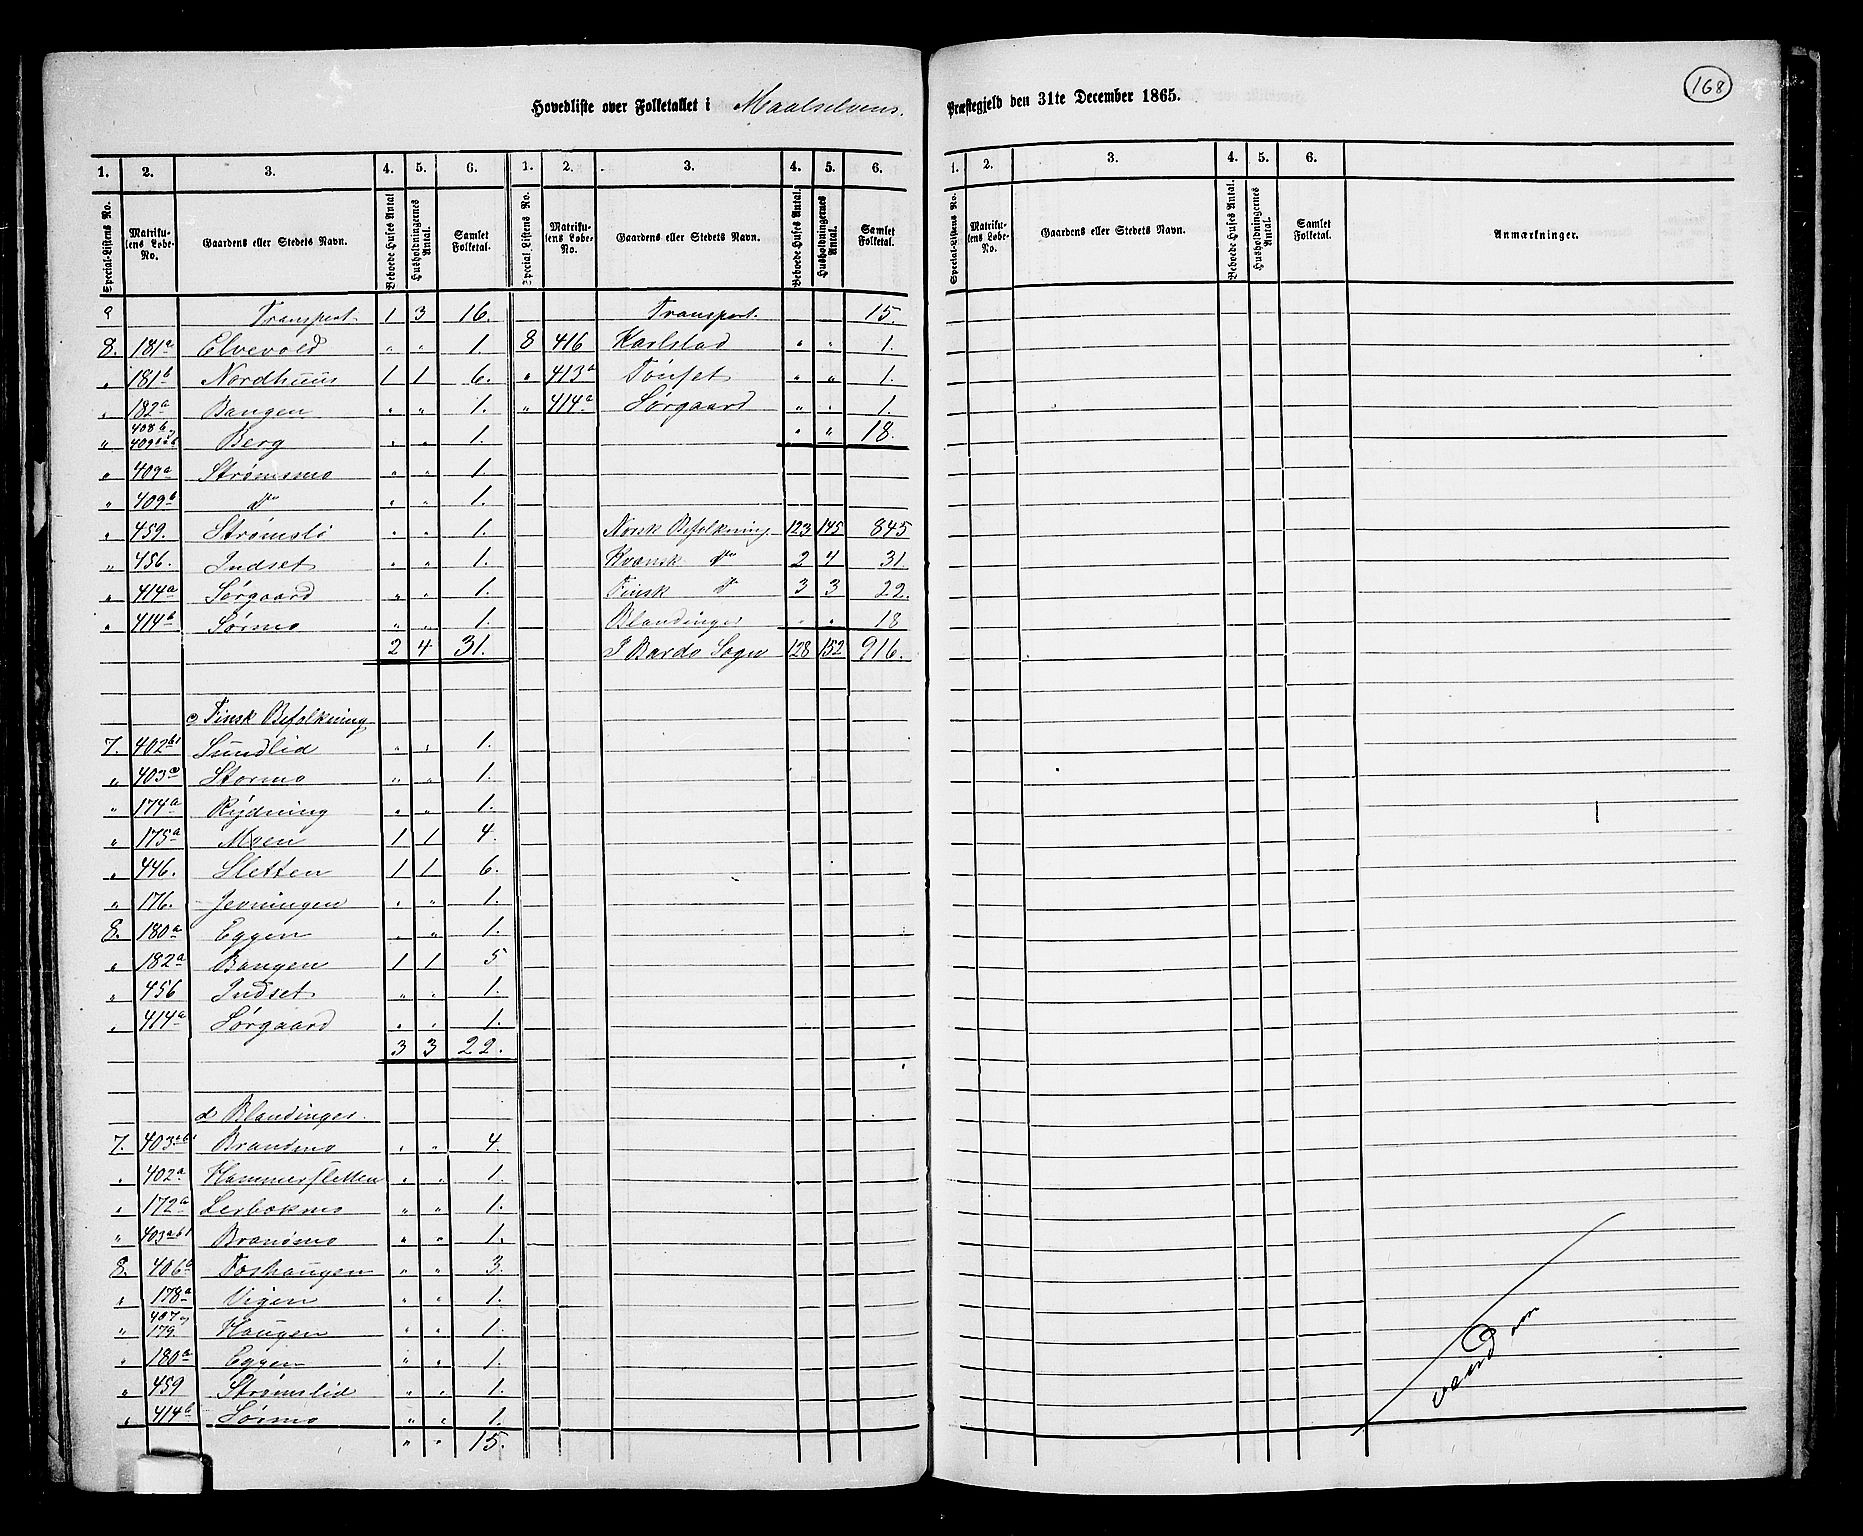 168
Hovedliste over Folketallet i Maalselvens Præstegjeld den 31te December 1865.
1. 2. 3. 4. 5. 6. 1. 2. 3. 4. 5. 6.
Special-Listens No. Matrikulens Løbe-No. Gaardens eller Stedets Navn. Beboede Huses Antal Husholdningernes Antal. Samlet Folketal. Special Listens No. Matrikulens Løbe-No. Gaardens eller Stedets Navn. Beboede Huses Antal. Husholdningernes Antal. Samlet Folketal.
Transport 1 3 16.
8. 181a Elvevold " " 1.
" 181b Nordhuus 1 1 6.
" 182a Bangen " " 1.
" 408b og 409 Berg " " 1.
" 409a Strømsmo " " 1
" 409b do " " 1.
" 459. Strømsli " " 1.
" 456. Indset " " 1.
" 414a Sørgaard " " 1.
" 414b Sørmo " " 1.
2 4 31.
c, Finsk Befolkning
7. 402b1 Sundlid " " 1.
" 403c Stormo " " 1.
" 174a Rydning " " 1.
" 175a Moen 1 1 4.
" 446. Sletten 1 1 6.
" 176. Jevningen " " 1.
8. 180a Eggen " " 1.
" 182a Bangen 1 1 5
" 456 Indset " " 1.
" 414a Sørgaard " " 1.
3 3 22.
d Blandinger.
7. 403ab1 Brandmo " " 4.
" 402a Hammersletten " " 1.
" 172a Lerbakmo " " 1.
" 403ab1 Brandmo " " 1.
8. 406a Foshaugen " " 3.
" 178a Vigen " " 1.
" 407 og 179. Haugen " " 1.
" 180a Eggen " " 1.
" 459 Strømslid " " 1.
" 414b Sørmo " " 1.
" " 15.
Transport. 15.
8 416 Karlstad " " 1.
" 413a Tønset " " 1.
" 414a Sørgaard " " 1.
" " 18.
Norsk Befolkning 123 145 845
Kvænsk do 2 4 31.
Finsk do 3 3 22.
Blandinger " " 18
I Bardo Sogn 128 152 916.
1. 2. 3. 4. 5. 6.
Special-Listens No. Matrikulens Løbe-No. Gaardens eller Stedets Navn. Beboede Huses Antal. Husholdningernes Antal. Samlet Folketal. Anmærkninger.